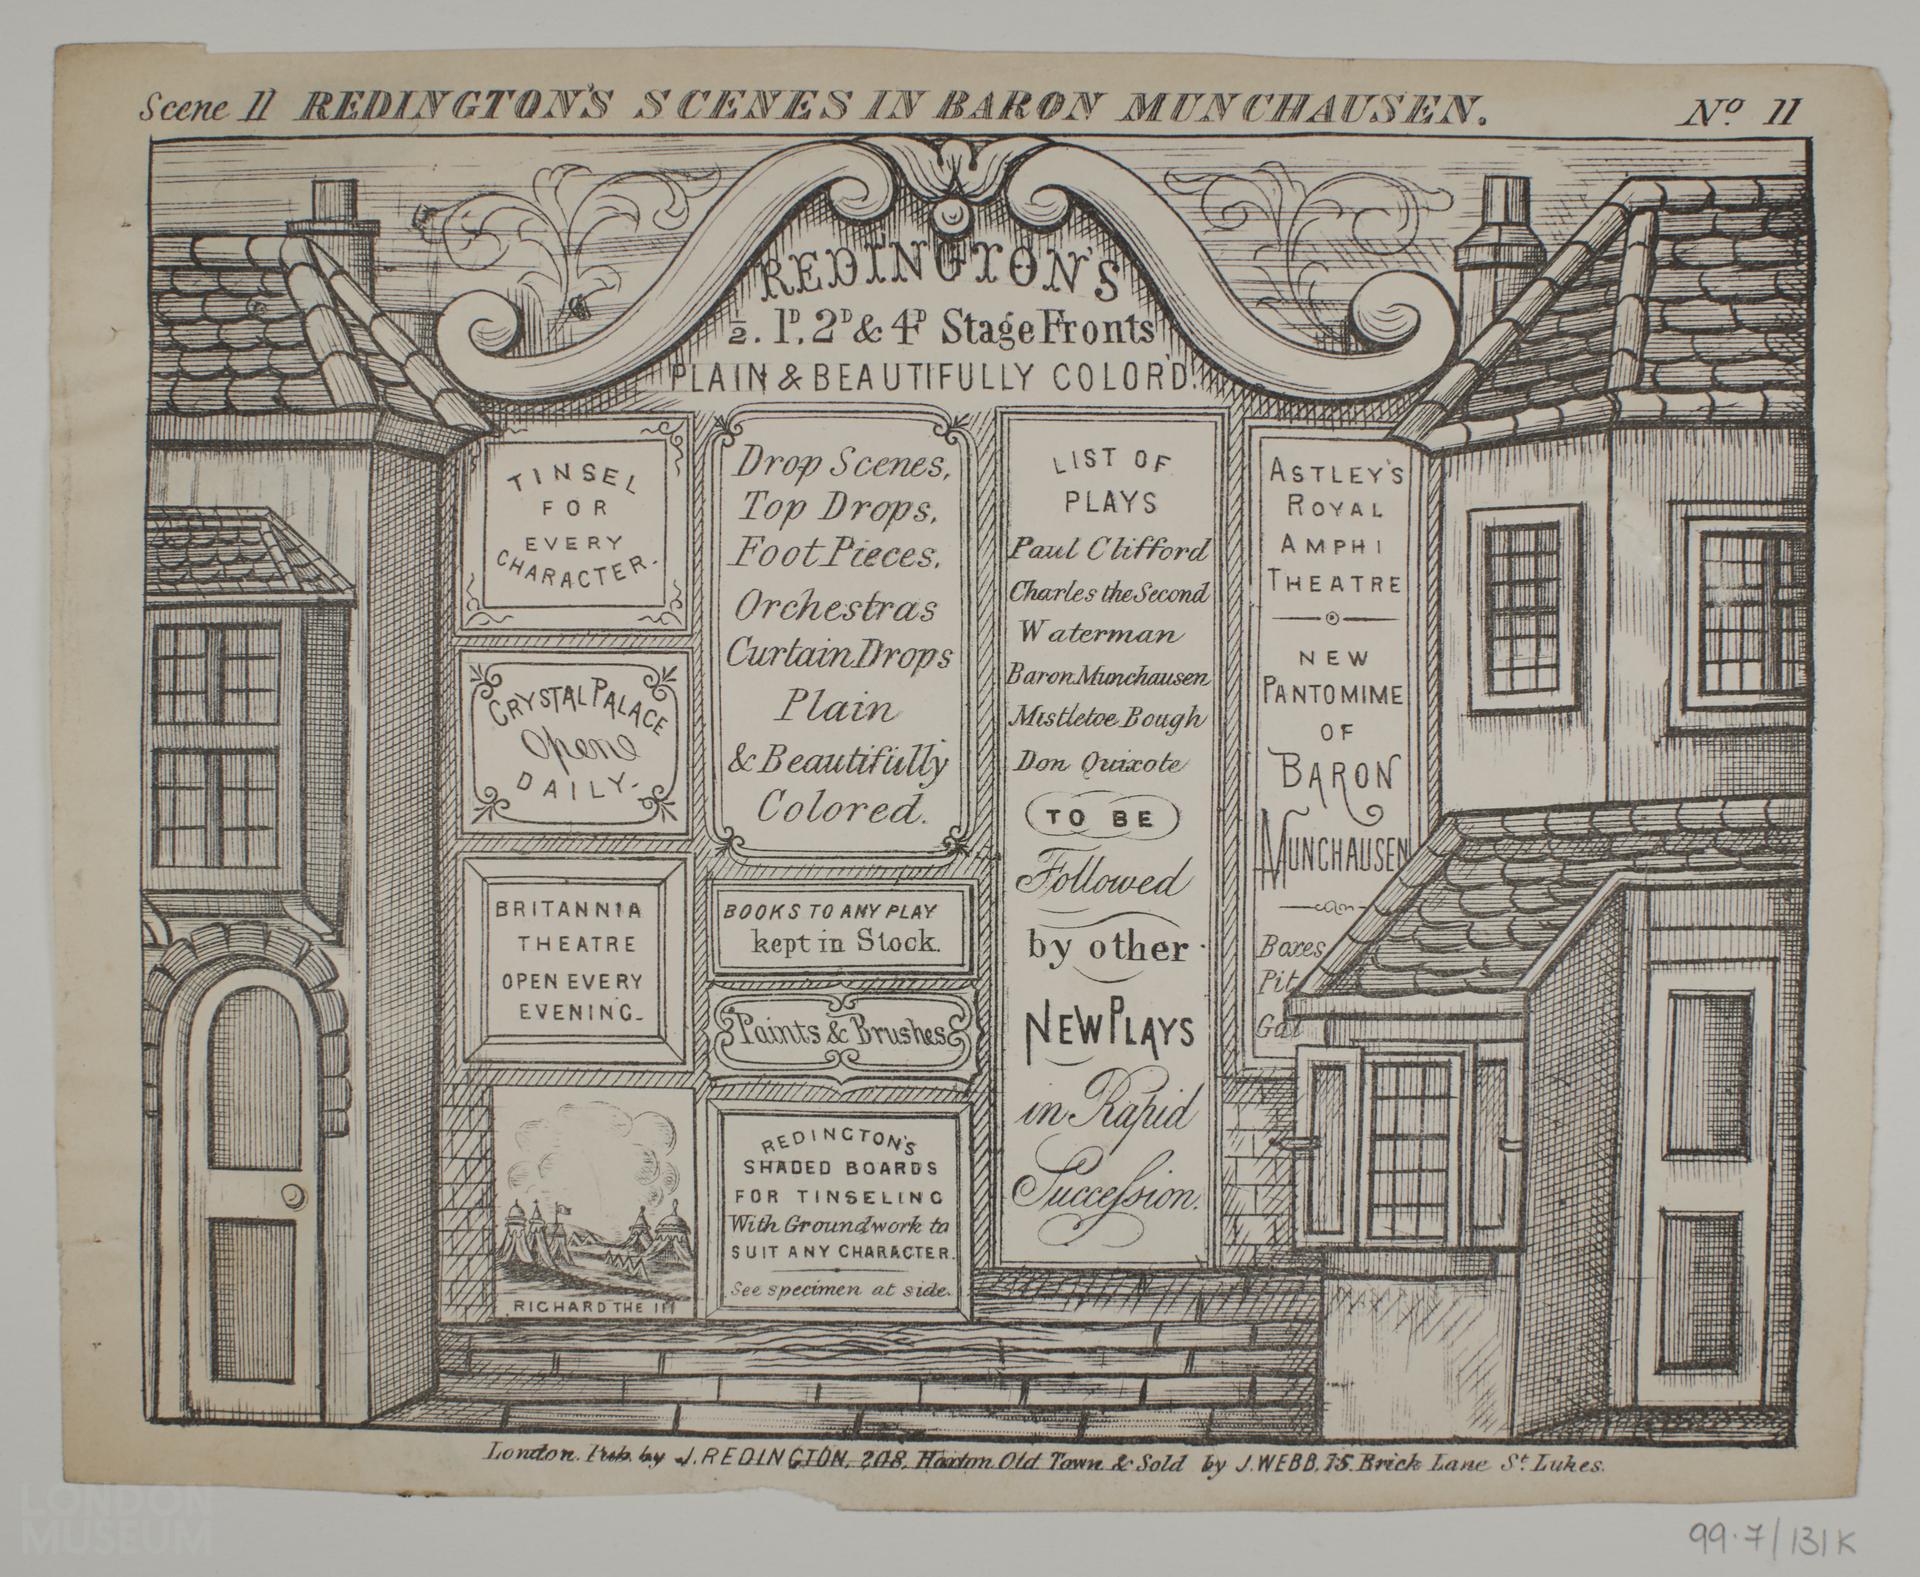 Scene 11 REDINGTON'S SCENES IN BARON MUNCHAUSEN. No. 11
REDINGTON'S
½. 1D, 2D & 4D Stage Fronts
PLAIN & BEAUTIFULLY COLOR'D.
TINSEL
FOR
EVERY
CHARACTER.
CRYSTAL PALACE
Open
DAILY.
BRITANNIA
THEATRE
OPEN EVERY
EVENING.
RICHARD THE III
Drop Scenes,
Top Drops,
Foot Pieces,
Orchestras
Curtain Drops
Plain
& Beautifully
Colored.
BOOKS TO ANY PLAY
kept in Stock.
Paints & Brushes
REDINGTON'S
SHADED BOARDS
FOR TINSELING
With Groundwork to
SUIT ANY CHARACTER.
See specimen at side.
LIST OF
PLAYS
Paul Clifford
Charles the Second
Waterman
Baron Munchausen
Mistletoe Bough
Don Quixote
TO BE
Followed
by other
NEW PLAYS
in Rapid
Succession.
ASTLEY'S
ROYAL
AMPHI
THEATRE
NEW
PANTOMIME
OF
BARON
MUNCHAUSEN
Boxes
Pit
Gal
London. Pub. by J. REDINGTON, 208, Hoxton Old Town & Sold by J. WEBB, 75, Brick Lane St. Lukes.
LONDON
MUSEUM
99.7/131K